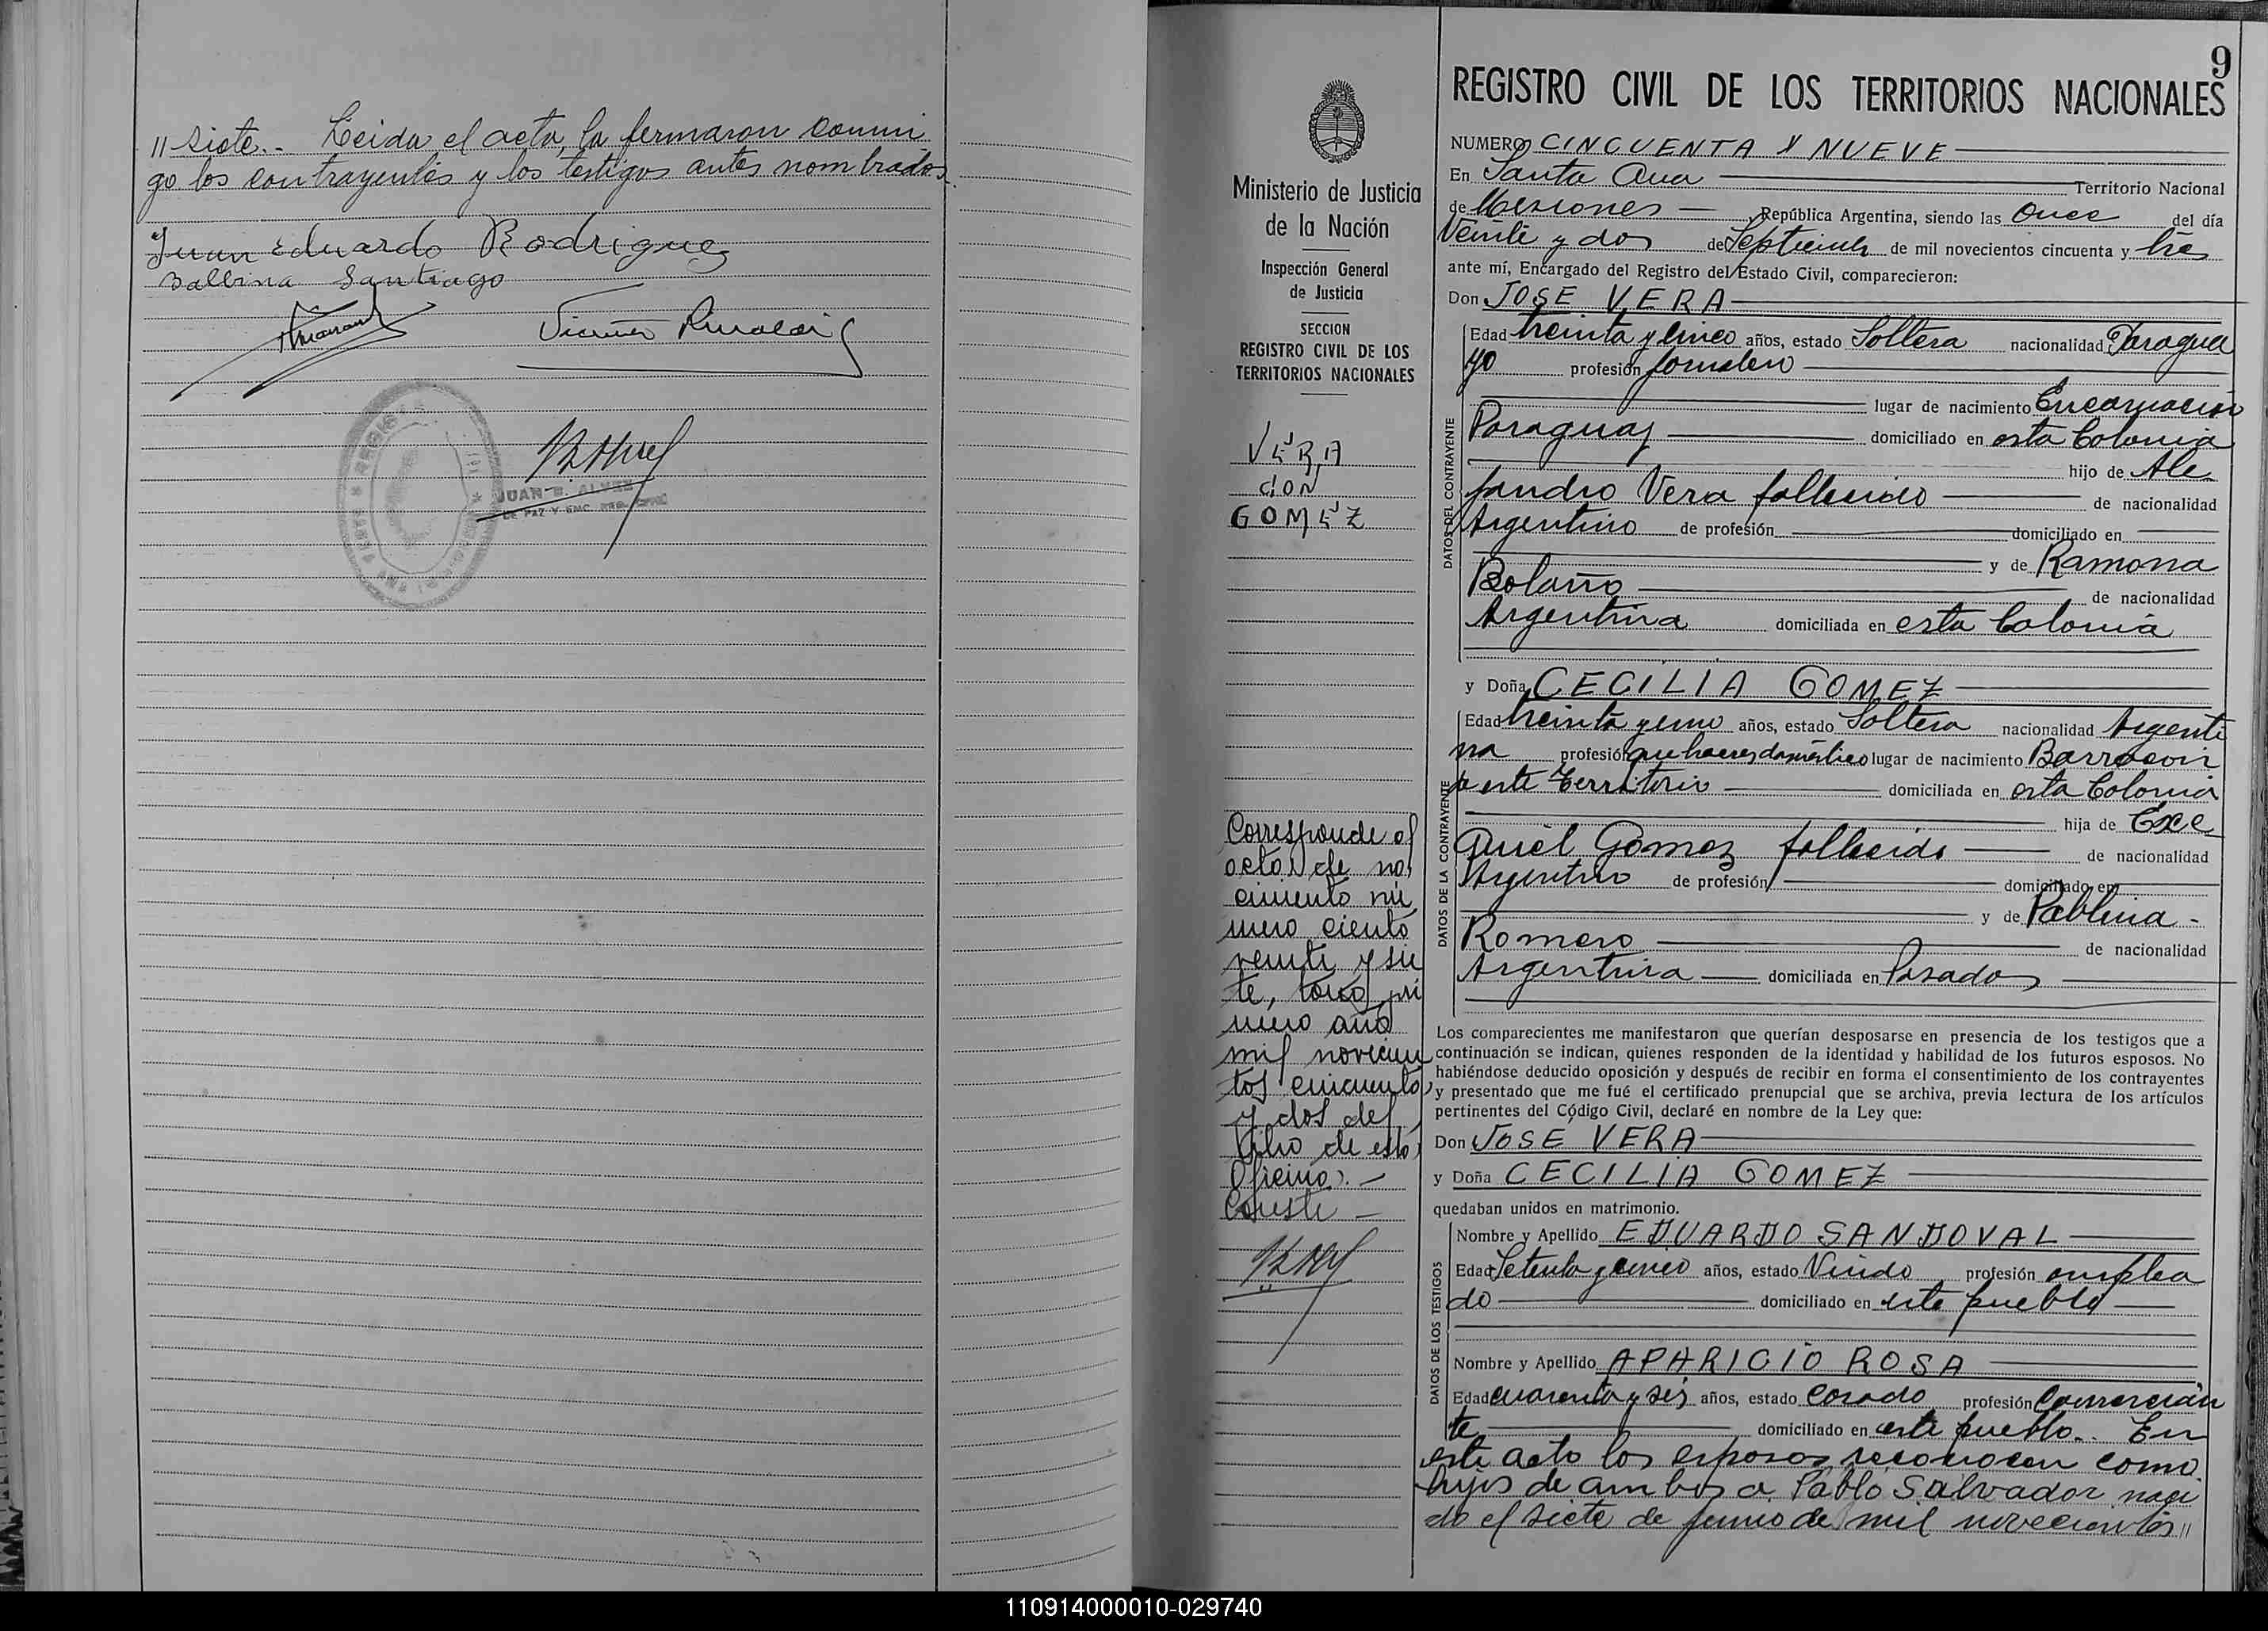 " siete.- Leida el acta, la firmaron conmi
go los contrayentes y los testigos antes nombrados.
Juan Eduardo Rodriguez
Balbina Santiago
JUAN B. ALVEZ
DE PAZ Y ENC. REG. CIVIL
9
REGISTRO CIVIL DE LOS TERRITORIOS NACIONALES
Ministerio de Justicia
de la Nación
Inspección General
de Justicia
SECCION
REGISTRO CIVIL DE LOS
TERRITORIOS NACIONALES
VERA
CON
GOMEZ
Corresponde al
acta de na
cimiento nú
mero ciento
veinte y sie
te, tomo pri
mero año
mil novecien
tos cincuenta
y dos del
libro de esta
Oficina.-
Conste-
NUMERO CINCUENTA Y NUEVE
En Santa Ana Territorio Nacional
de Misiones República Argentina, siendo las Once del día
Veinte y dos de Septiembre de mil novecientos cincuenta y tres
ante mí, Encargado del Registro del Estado Civil, comparecieron:
Don JOSE VERA
DATOS DEL CONTRAYENTE
Edad treinta y cinco años, estado Soltero nacionalidad Paragua
yo profesión jornalero
lugar de nacimiento Encarnación
Paraguay domiciliado en esta Colonia
hijo de Ale
jandro Vera fallecido de nacionalidad
Argentino de profesión domiciliado en
y de Ramona
Bolaño de nacionalidad
Argentina domiciliada en esta Colonia
y Doña CECILIA GOMEZ
DATOS DE LA CONTRAYENTE
Edad treinta y uno años, estado Soltera nacionalidad Argenti
na profesión quehaceres domésticos lugar de nacimiento Barracon
este Territorio domiciliada en esta Colonia
hija de Exe
quiel Gomez fallecido de nacionalidad
Argentino de profesión domiciliado en
y de Pablina -
Romero de nacionalidad
Argentina domiciliada en Posadas
Los comparecientes me manifestaron que querían desposarse en presencia de los testigos que a
continuación se indican, quienes responden de la identidad y habilidad de los futuros esposos. No
habiéndose deducido oposición y después de recibir en forma el consentimiento de los contrayentes
y presentado que me fué el certificado prenupcial que se archiva, previa lectura de los artículos
pertinentes del Código Civil, declaré en nombre de la Ley que:
Don JOSE VERA
y Doña CECILIA GOMEZ
quedaban unidos en matrimonio.
DATOS DE LOS TESTIGOS
Nombre y Apellido EDUARDO SANDOVAL
Edad Setenta y cinco años, estado Viudo profesión emplea
do domiciliado en este pueblo
Nombre y Apellido APARICIO ROSA
Edad cuarenta y seis años, estado Casado profesión Comercian
te domiciliado en este pueblo.. En
este acto los esposos reconocen como
hijos de ambos a Pablo Salvador naci
do el siete de junio de mil novecientos "
110914000010-029740